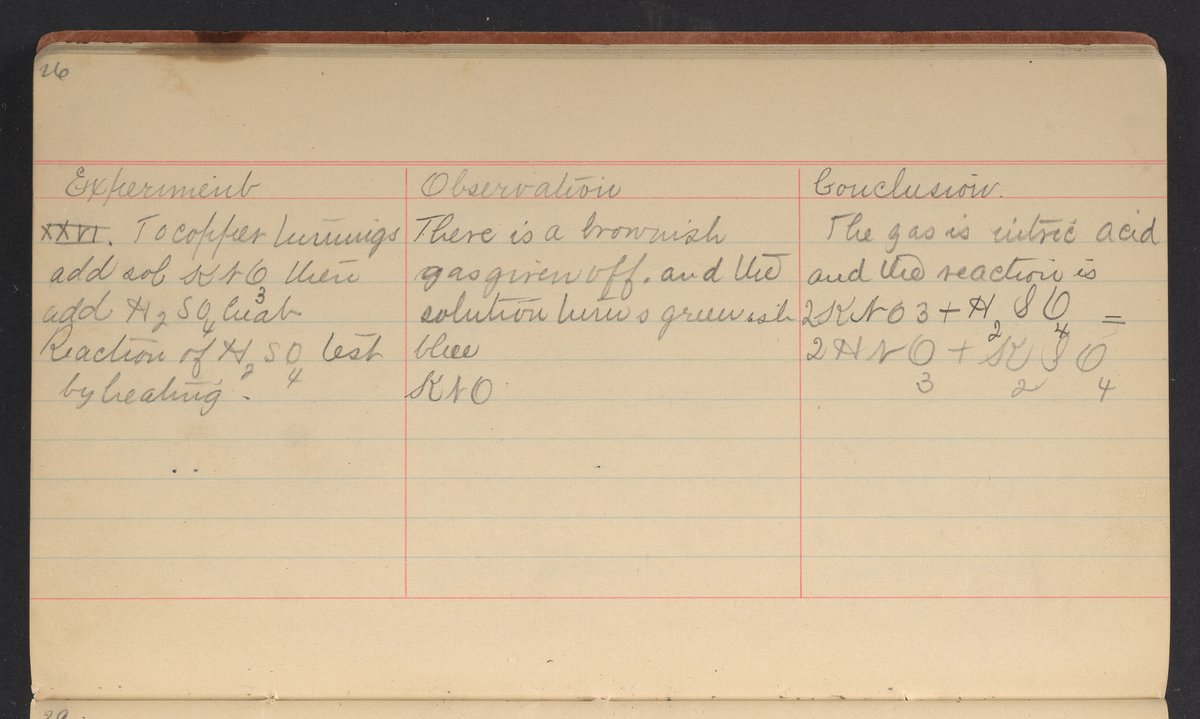 26
Experiment
XXVI. To copper turnings
add sol KNO3 then
add H2SO4 heat
Reaction of H2SO4 test
by heating.
Observation
There is a brownish
gas given off. and the
solution turns greenish
blue
KNO
Conclusion.
The gas is nitric acid
and the reaction is
2KNO3 + H2SO4 =
2HNO3 + K2SO4